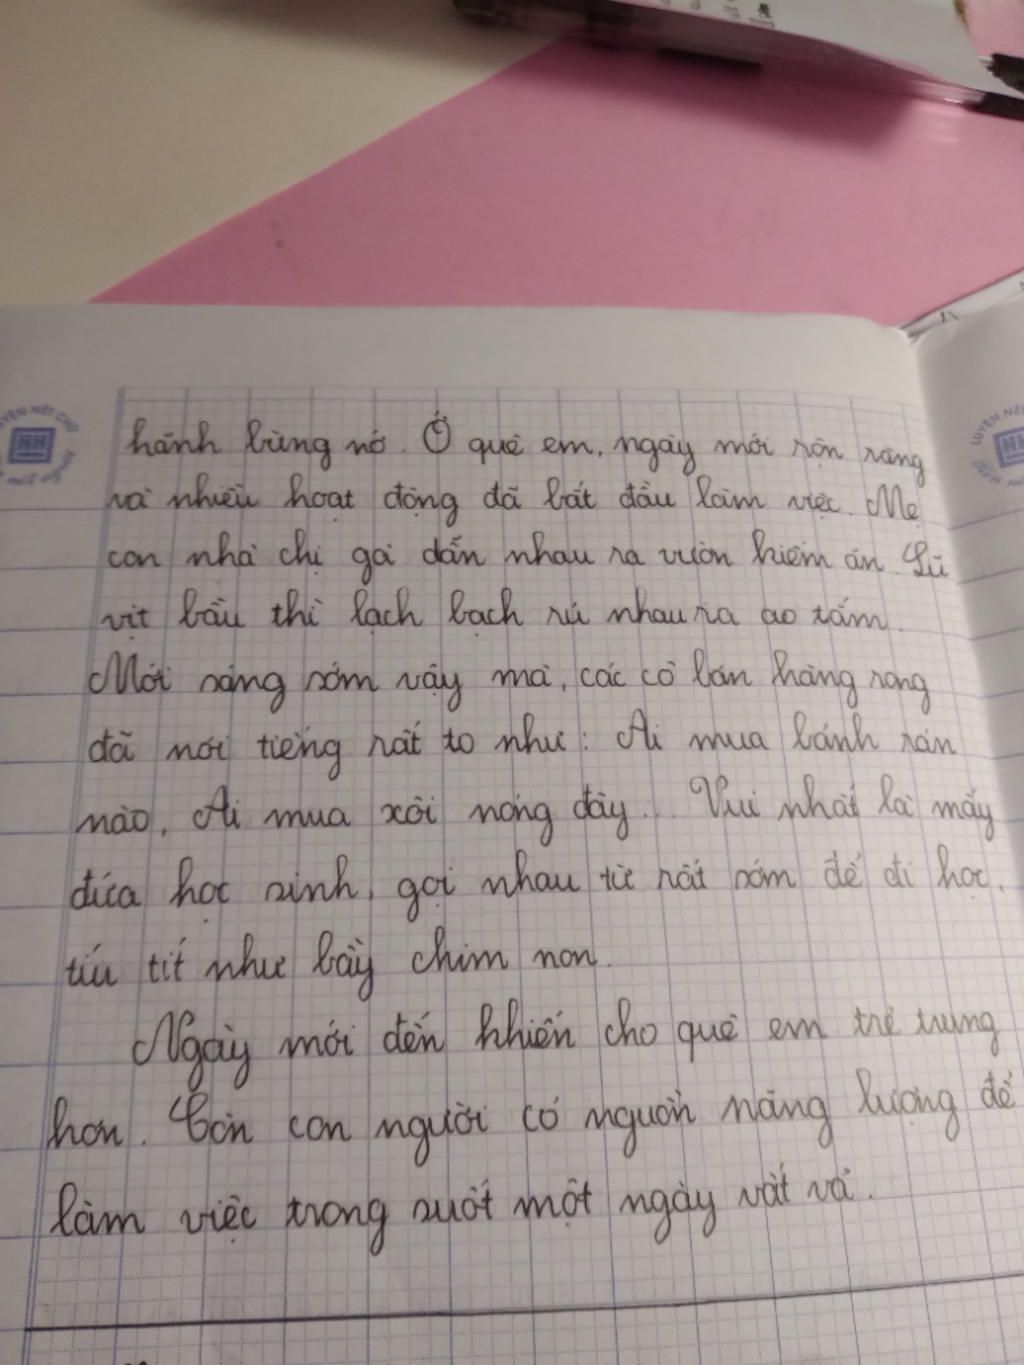 hãnh bừng nở. Ở quê em, ngày mới rộn ràng
và nhiều hoạt động đã bắt đầu làm việc. Mẹ
con nhà chị gà dẫn nhau ra vườn kiếm ăn. Lũ
vịt bầu thì lạch bạch rủ nhau ra ao tắm.
Mới sáng sớm vậy mà, các cô bán hàng rong
đã nói tiếng rất to như: Ai mua bánh rán
nào, Ai mua xôi nóng đây... Vui nhất là mấy
đứa học sinh, gọi nhau từ rất sớm để đi học,
tíu tít như bầy chim non.
Ngày mới đến khiến cho quê em trẻ trung
hơn. Còn con người có nguồn năng lượng để
làm việc trong suốt một ngày vất vả.
LUYỆN NÉT CHỮ
HH
LUYỆN NÉ
HH